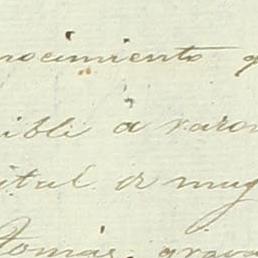 nocimiento q
ible a varon
itul or mug
Tomás, grava